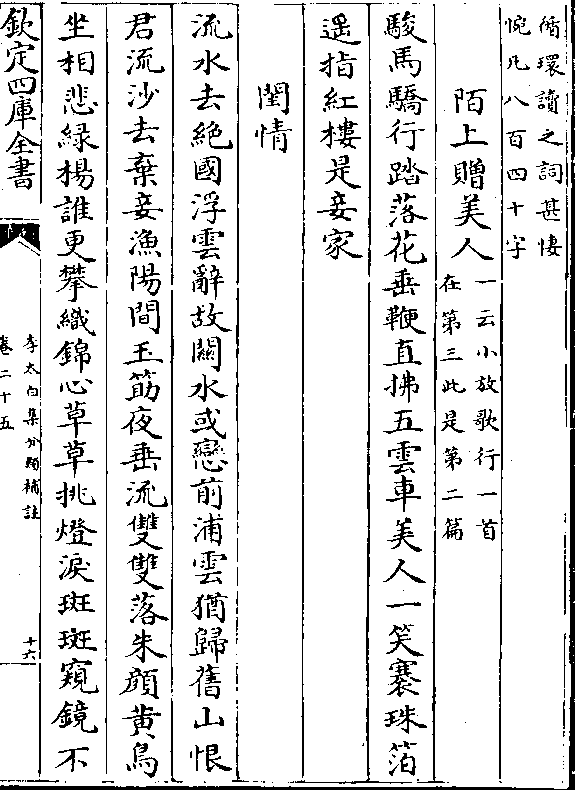 循環讀之詞甚悽
惋凡八百四十字
陌上贈美人
一云小放歌行一首
在第三此是第二篇
駿馬驕行踏落花垂鞭直拂五雲車美人一笑褰珠箔
遥指紅樓是妾家
閨情
流水去絶國浮雲辭故關水或戀前浦雲猶歸舊山恨
君流沙去棄妾漁陽間玉筯夜垂流雙雙落朱顔黄鳥
坐相悲緑楊誰更攀織錦心草草挑燈淚斑斑窺鏡不
欽定四庫全書
李太白集分類補註
卷二十五
十六